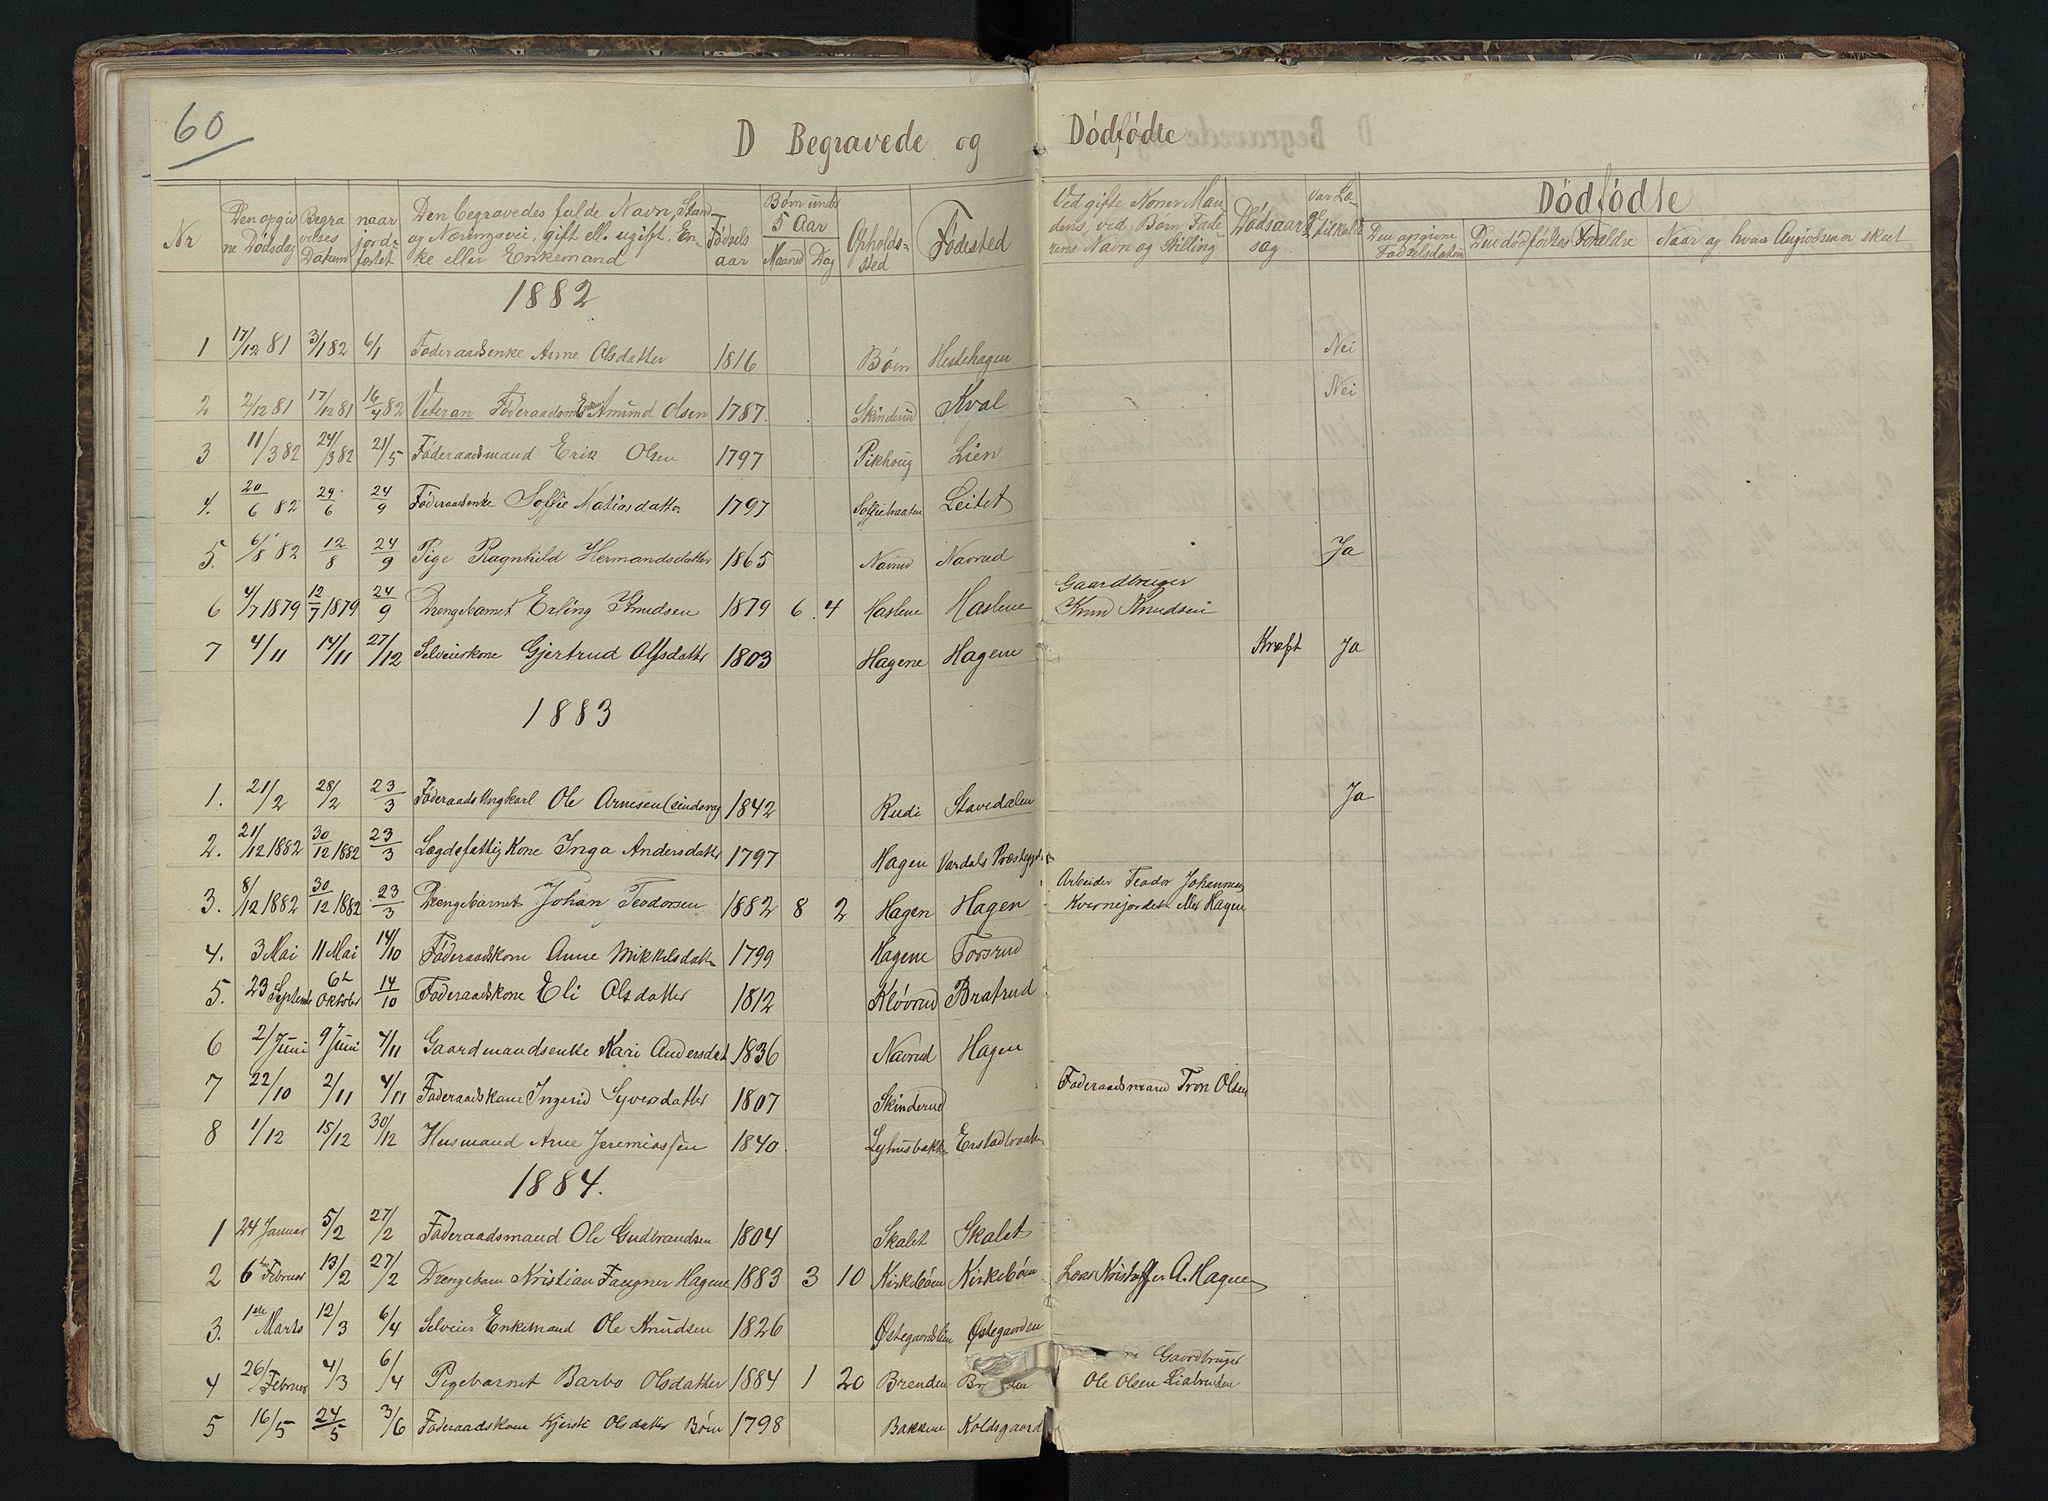 60
D Begravede og Dödfødte
Nr
Den opgivne Dødsdag
Begravelses Datum
naar jordfæstet
Den begravedes fulde Navn, Stand og Næringsvei, gift ell. ugift, Enke eller Enkemand
Fødsels aar
Børn under 5 Aar
Maaned Dag
Opholdssted
Fødested
Ved gifte Koner Mandens, ved Børn Faderens Navn og Stilling
Dødsaarsag
Dødfødte
Den opgivne Fødselsdatum
Den dødfødtes Forældre
Naar og hvem Angivelsen er skeet
1882
1 17/12 81 3/1 82 6/1 Føderaadsenke Anne Olsdatter 1816 Børn Hestehagen Nei
2 2/12 81 17/12 81 16/4 82 Veteran Føderaadsm Amund Olsen 1787. Skinderud Kval Nei
3 11/3 82 24/3 82 21/5 Føderaadsmand Erik Olsen 1797 Pikhoug Lien
4. 20/6 82 29/6 24/9 Føderaadsenke Soffie Matiasdatter 1797 Soffiebraaten Leitet
5. 6/8 82 12/8 24/9 Pige Ragnhild Hermandsdatter 1865 Navrud Navrud Ja
6 4/7 1879 12/7 1879 24/9 Drengebarnet Erling Knudsen 1879 6. 4 Haslene Haslene Gaardbruger Knud Knudsen
7 4/11 14/11 27/12 Selveierkone Gjertrud Alfsdatter 1803 Hagene Hagene Kræft Ja
1883
1. 21/2 28/2 23/3 Føderaads Ungkarl Ole Arnesen (sindsvag 1842 Rudi Stavedalen Ja
2. 21/12 1882 30/12 1882 23/3 Lægdsfattig Kone Inga Andersdatter 1797 Hagen Vardals
3. 8/12 1882 30/12 1882 23/3 Drengebarnet Johan Teodorsen 1882 8 2 Hagen Hagen Arbeider Teodor Johannes Kvernejordet eller Hagen
4. 3 Mai 11 Mai 14/10 Føderaadskone Anne Mikkelsdatter 1799 Hagene Toosrud
5. 23 Septembr 6te Oktober 14/10 Føderaadskone Eli Olsdatter 1812 Kløvrud Bratrud
6 2/Juni 9 Juni 4/11 Gaardmandsenke Kari Andersdat 1836 Navrud Hagen
7 22/10 2/11 4/11 Føderaadskone Ingerid Syversdatter 1807 Skinderud Føderaadsmand Tron Olsen
8 1/12 15/12 30/12 Husmand Arne Jeremiassen 1840. Lybusbakke Enstadbraaten
1884.
1 24 Januar 5/2 27/2 Føderaadsmand Ole Gudbrandsen 1804 Skalet Skalet
2 6te Februar 13/2 27/2 Drengebarn Kristian Faugner Hagene 1883 3 10 Kirkebøen Kirkebøen Kristoffer A. Hagen
3. 1ste Marts 12/3 6/4 Selveier Enkemand Ole Knudsen 1826 Østegaardslien Østegaarden
4 26/Februar 4/3 6/4 Pigebarnet Barbo Olsdatter 1884 1 20 Brenden Gaardbruger Ole Olsen Liabrenden
5 16/5 24/5 3/6 Føderaadskone Kjersti Olsdatter Børn 1798 Bakkene Koldsgaard